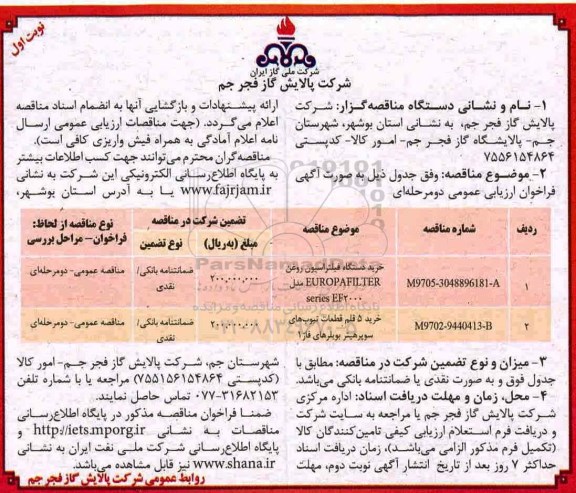 نوبت اول
شرکت ملی گاز ایران
شرکت پالایش گاز فجر جم
۱- نام و نشانی دستگاه مناقصه‌گزار: شرکت
پالایش گاز فجر جم، به نشانی استان بوشهر، شهرستان
جم- پالایشگاه گاز فجر جم- امور کالا- کدپستی
۷۵۵۶۱۵۴۸۶۴
۲- موضوع مناقصه: وفق جدول ذیل به صورت آگهی
فراخوان ارزیابی عمومی دومرحله‌ای
ارائه پیشنهادات و بازگشایی آنها به انضمام اسناد مناقصه
اعلام می‌گردد. (جهت مناقصات ارزیابی عمومی ارسال
نامه اعلام آمادگی به همراه فیش واریزی کافی است).
مناقصه‌گران محترم می‌توانند جهت کسب اطلاعات بیشتر
به پایگاه اطلاع‌رسانی الکترونیکی این شرکت به نشانی
www.fajrjam.ir یا به آدرس استان بوشهر،
ردیف
شماره مناقصه
موضوع مناقصه
تضمین شرکت در مناقصه
مبلغ (به‌ریال)
نوع تضمین
نوع مناقصه از لحاظ:
فراخوان– مراحل بررسی
۱
M9705-3048896181-A
خرید دستگاه فیلتراسیون روغن
EUROPAFILTER مدل
series EF۲۰۰۰
۲۰۰,۰۰۰,۰۰۰
ضمانتنامه بانکی/
نقدی
مناقصه عمومی- دومرحله‌ای
۲
M9702-9440413-B
خرید ۵ قلم قطعات تیوب‌های
سوپرهیتر بویلرهای فاز۱
ضمانتنامه بانکی/
نقدی
مناقصه عمومی- دومرحله‌ای
۳- میزان و نوع تضمین شرکت در مناقصه: مطابق با
جدول فوق و به صورت نقدی یا ضمانتنامه بانکی می‌باشد.
۴- محل، زمان و مهلت دریافت اسناد: اداره مرکزی
شرکت پالایش گاز فجر جم یا مراجعه به سایت شرکت
و دریافت فرم استعلام ارزیابی کیفی تامین‌کنندگان کالا
(تکمیل فرم مذکور الزامی می‌باشد)، زمان دریافت اسناد
حداکثر ۷ روز بعد از تاریخ انتشار آگهی نوبت دوم، مهلت
شهرستان جم، شرکت پالایش گاز فجر جم- امور کالا
(کدپستی ۷۵۵۱۵۶۱۵۴۸۶۴) مراجعه یا با شماره تلفن
۰۷۷-۳۱۶۸۲۱۵۳ تماس حاصل نمایند.
ضمنا فراخوان مناقصه مذکور در پایگاه اطلاع‌رسانی
مناقصات به نشانی http://iets.mporg.ir و
پایگاه اطلاع‌رسانی شرکت ملی نفت ایران به نشانی
www.shana.ir نیز قابل مشاهده می‌باشد.
روابط عمومی شرکت پالایش گاز فجر جم